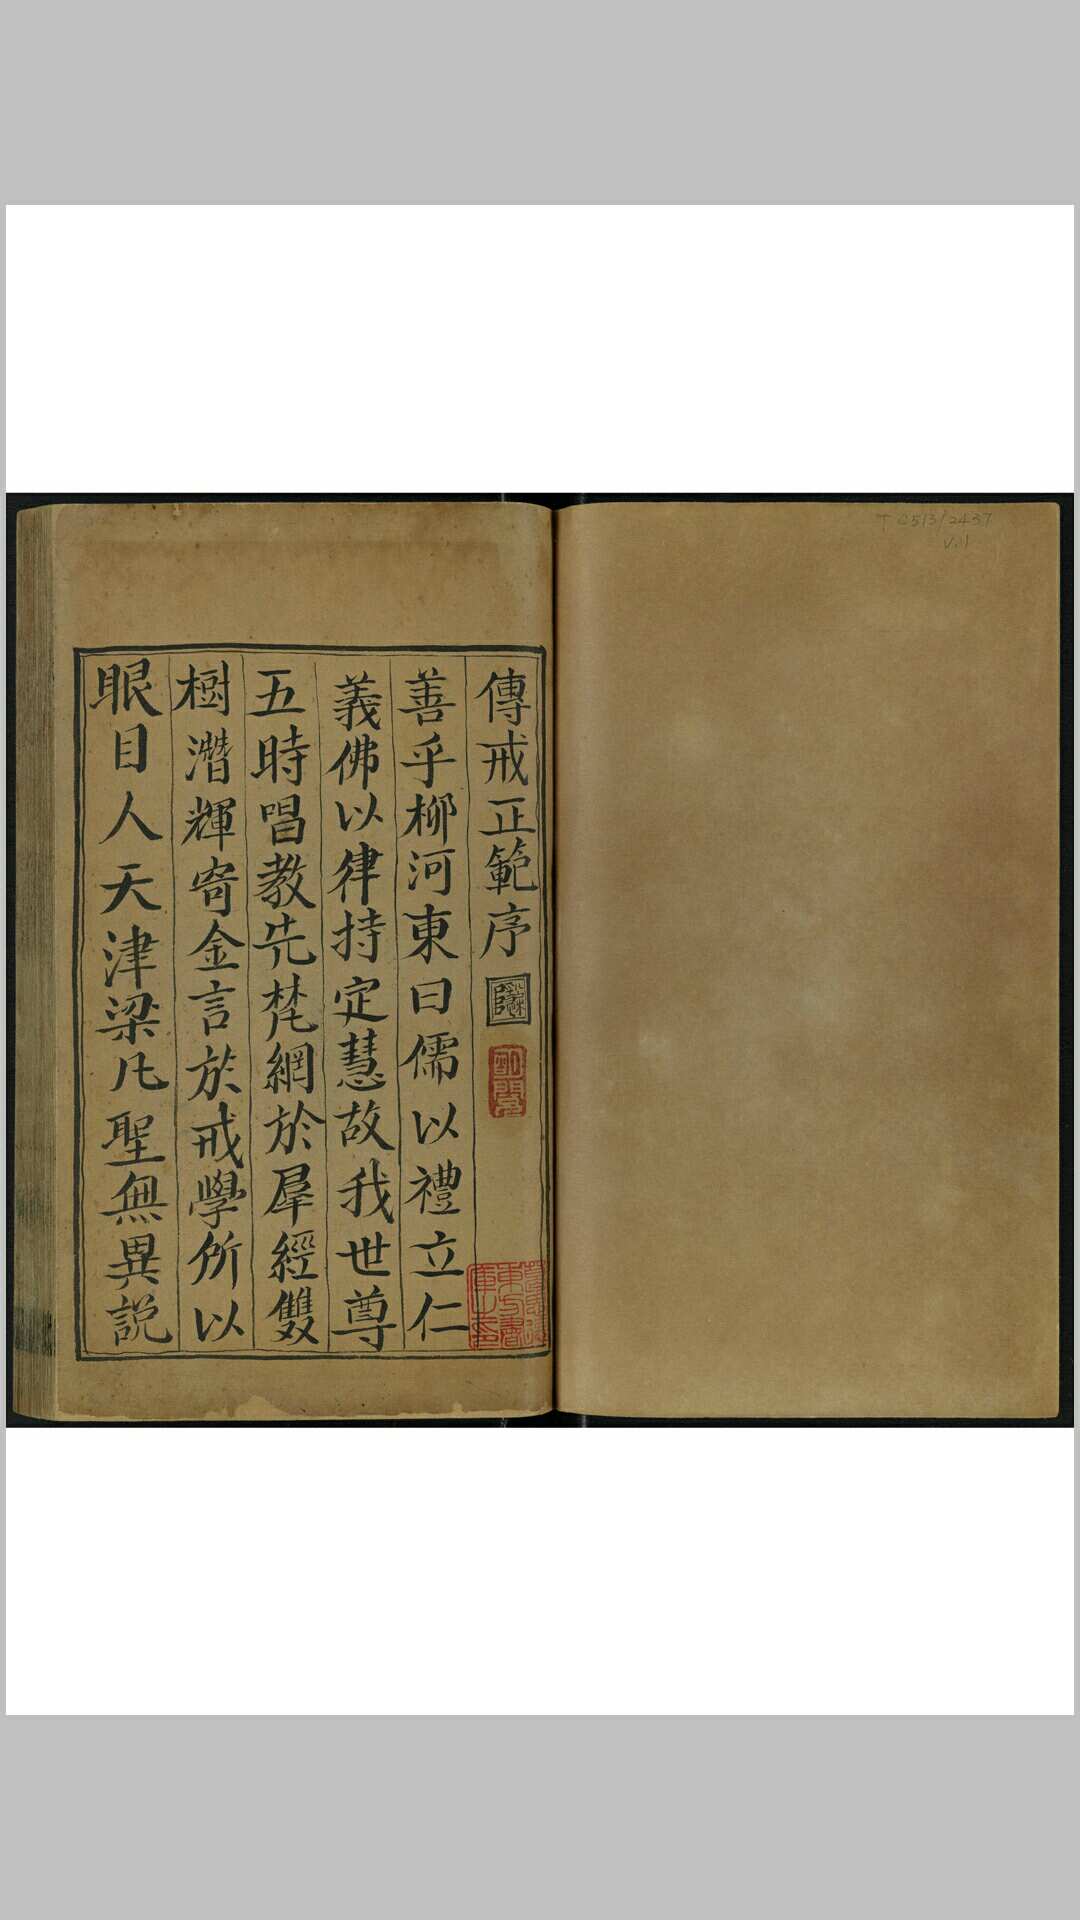 T C513/2437
V.1
傳戒正範序
善乎柳河東曰儒以禮立仁
義佛以律持定慧故我世尊
五時唱教先梵網於羣經雙
樹潛輝寄金言於戒學所以
眼目人天津梁凡聖無異説